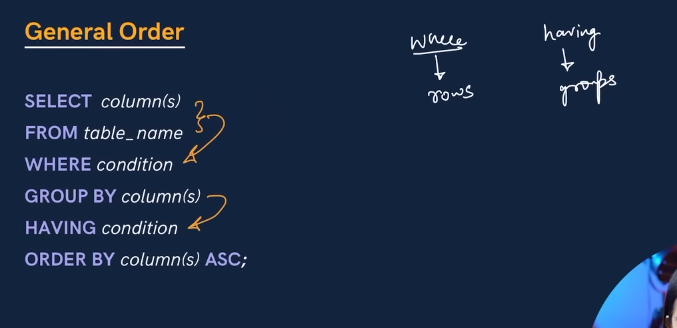 General Order
where
rows
having
groups
SELECT column(s)
FROM table_name
WHERE condition
GROUP BY column(s)
HAVING condition
ORDER BY column(s) ASC;